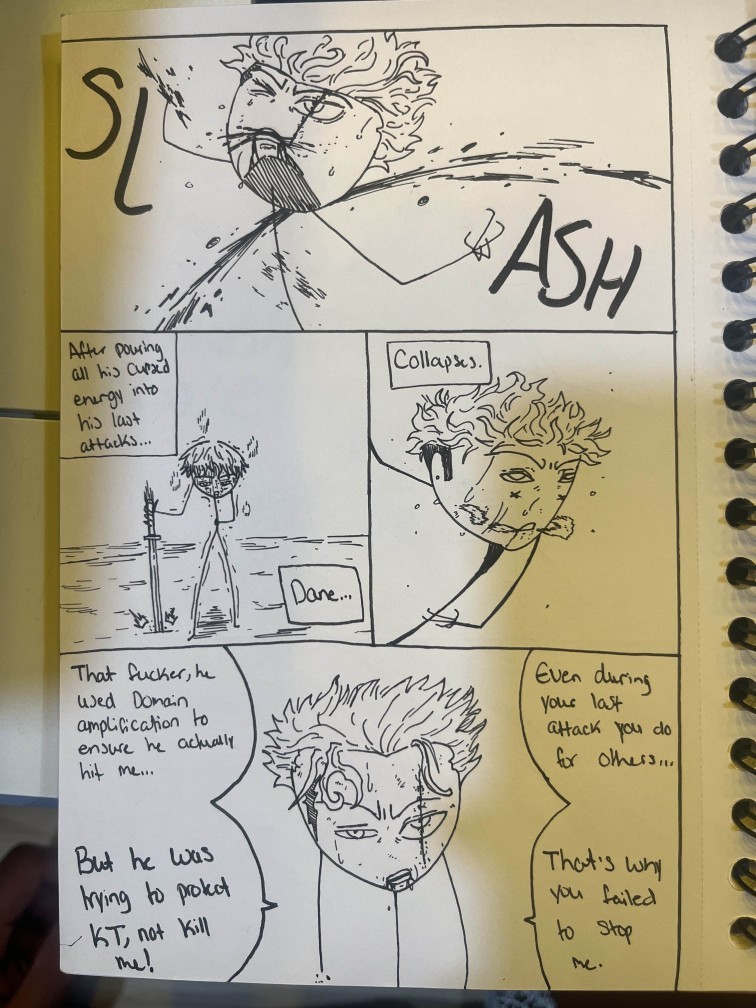 SL
ASH
After pouring
all his cursed
energy into
his last
attacks...
Dane...
Collapses.
That fucker, he
used Domain
amplification to
ensure he actually
hit me...
But he was
trying to protect
KT, not kill
me!
Even during
your last
attack you do
for others...
That's why
you failed
to stop
me.